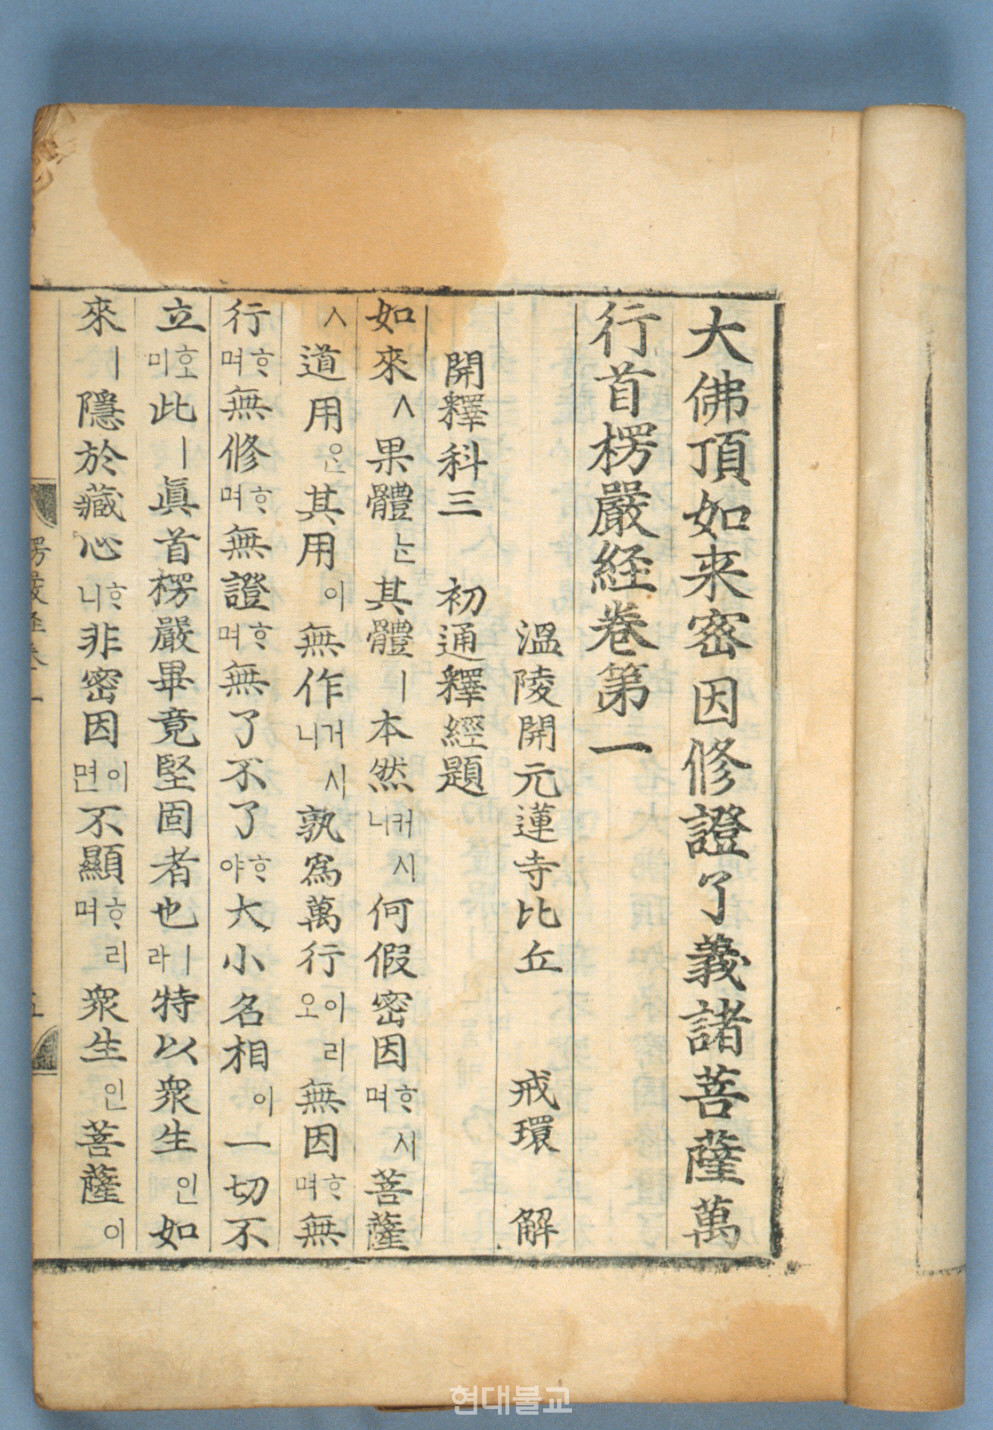 大佛頂如来密因修證了義諸菩薩萬
行首楞嚴經卷第一
溫陵開元蓮寺比丘 戒環 解
開釋科三 初通釋經題
如來ㅅ果體ᄂᆞᆫ其體ㅣ本然커시니何假密因ᄒᆞ시며菩薩
ㅅ道用ᄋᆞᆫ其用이無作거시니孰爲萬行이리오無因ᄒᆞ며無
行ᄒᆞ며無修ᄒᆞ며無證ᄒᆞ며無了不了ᄒᆞ야大小名相이一切不
立호미此ㅣ眞首楞嚴畢竟堅固者也ㅣ라特以衆生인如
來ㅣ隱於藏心ᄒᆞ니非密因이면不顯ᄒᆞ리며衆生인菩薩이
楞嚴經卷一
현대불교